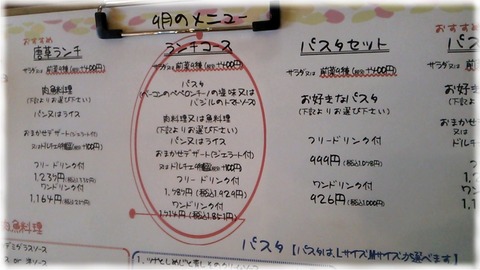 9月のメニュー
おすすめ
唐草ランチ
サラダ又は前菜9種(税込+400円)
肉料理又は魚料理
(下記よりお選び下さい)
パン又はライス
おまかせデザート(ジェラート付)
フリードリンク付
1,237円
ワンドリンク付
1,164円
ランチコース
サラダ又は前菜9種(税込+400円)
パスタ
(ベーコンのペペロンチーノの塩味又は
バジルのトマトソース)
肉料理又は魚料理
(下記よりお選び下さい)
パン又はライス
おまかせデザート(ジェラート付)
フリードリンク付
1,787円(税込1,929円)
ワンドリンク付
1,714円(税込1,851円)
パスタセット
サラダ又は前菜9種(税込+400円)
お好きなパスタ
(下記よりお選び下さい)
フリードリンク付
999円
ワンドリンク付
926円(税込1,000円)
おすすめ
パス
サラダ又は
お好き
(下記より
又はドルチェ
フリード
ワンド
肉魚料理
デミグラスソース
パスタ【パスタは、Lサイズ、Mサイズが選べます】